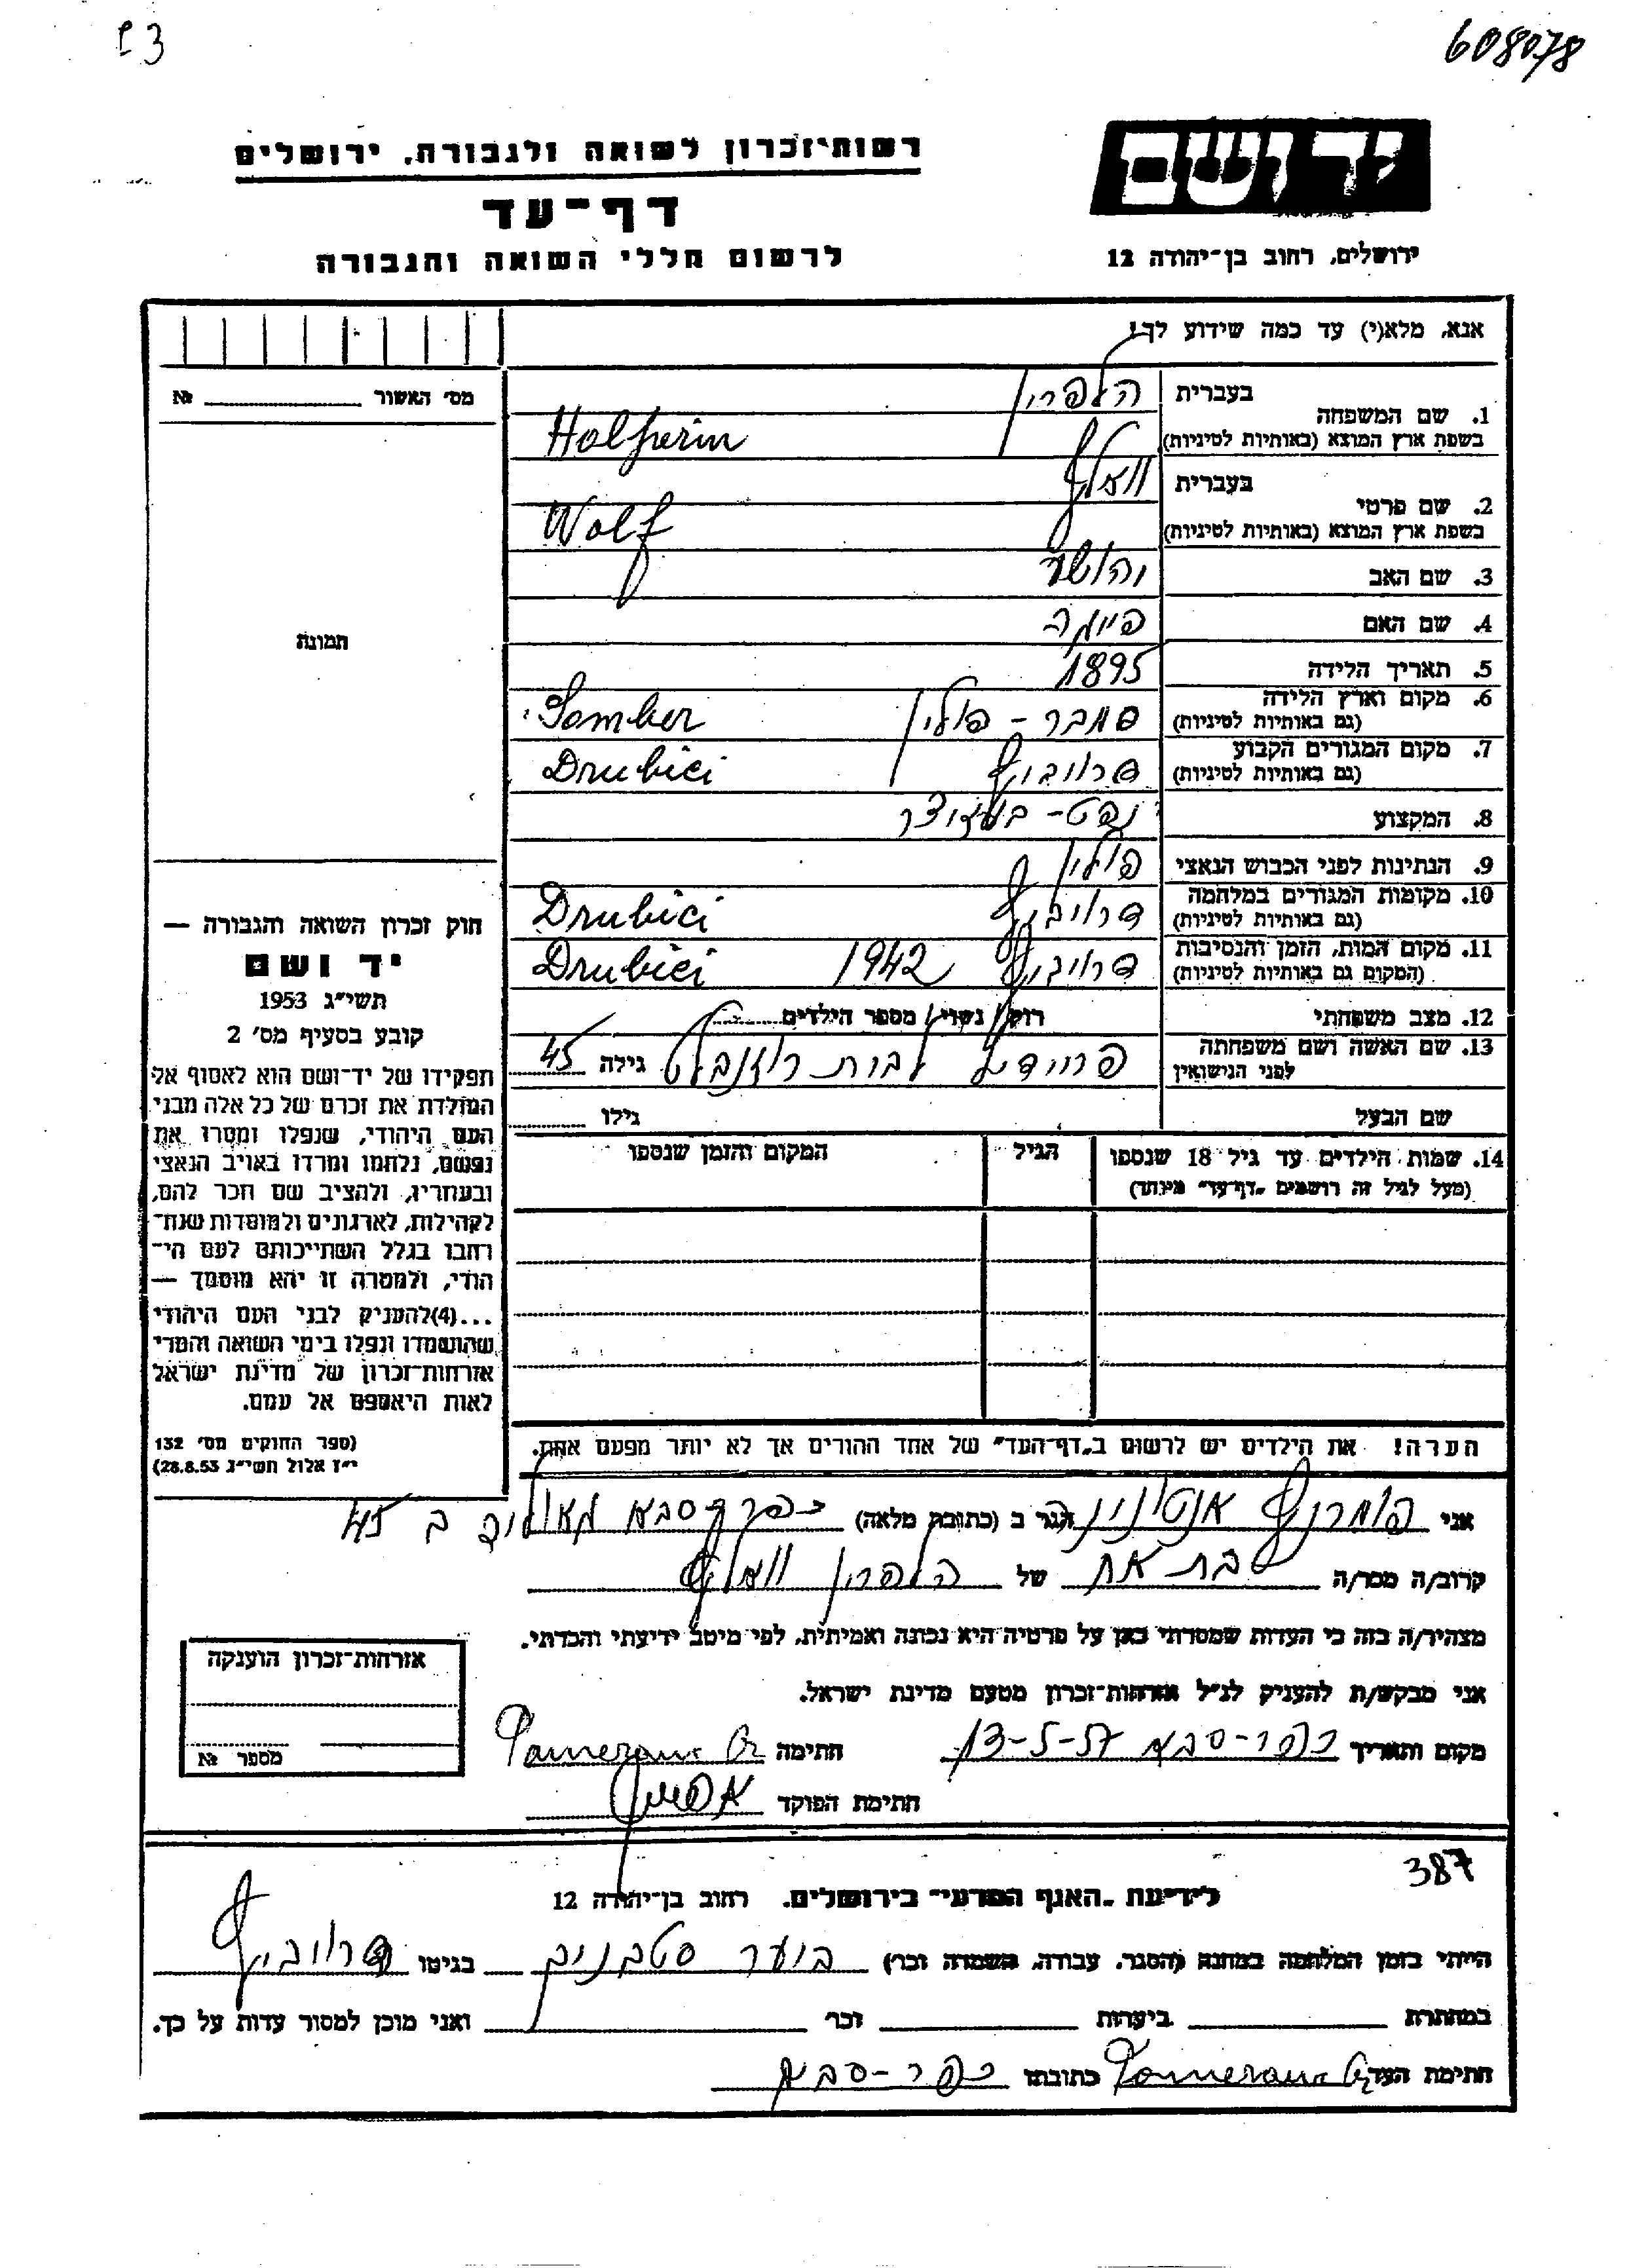 608078
רשות־זכרון לשואה ולגבורה, ירושלים
יד ושם
דף־עד
לרשום חללי השואה והגבורה
ירושלים, רחוב בן־יהודה 12
אנא, מלא(י) עד כמה שידוע לך!
מס׳ האשור № 
1. שם המשפחה בעברית הלפרין
בשפת ארץ המוצא (באותיות לטיניות) Halperin
2. שם פרטי בעברית וואלף
בשפת ארץ המוצא (באותיות לטיניות) Wolf
3. שם האב
4. שם האם
5. תאריך הלידה 1895
6. מקום וארץ הלידה (גם באותיות לטיניות) סמבר - פולין Samber
7. מקום המגורים הקבוע (גם באותיות לטיניות) Drubici
8. המקצוע
9. הנתינות לפני הכבוש הנאצי פולין
10. מקומות המגורים במלחמה (גם באותיות לטיניות) Drubici
11. מקום המות, הזמן והנסיבות (המקום גם באותיות לטיניות) 1942 Drubici
12. מצב משפחתי רוק/ נשוי/ מספר הילדים
13. שם האשה ושם משפחתה לפני הנישואין לבית רוזנבלט גילה 45
שם הבעל גילו
14. שמות הילדים עד גיל 18 שנספו הגיל המקום והזמן שנספו
(מעל לגיל זה רושמים „דף־עד" מיוחד)
תמונה
חוק זכרון השואה והגבורה —
יד ושם
תשי״ג 1953
קובע בסעיף מס׳ 2
תפקידו של יד־ושם הוא לאסוף אל
המולדת את זכרם של כל אלה מבני
העם היהודי, שנפלו ומסרו את
נפשם, נלחמו ומרדו באויב הנאצי
ובעוזריו, ולהציב שם וזכר להם,
לקהילות, לארגונים ולמוסדות שנח־
רבו בגלל השתייכותם לעם הי־
הודי, ולמטרה זו יהא מוסמך —
...(4)להעניק לבני העם היהודי
שהושמדו ונפלו בימי השואה והמרי
אזרחות־זכרון של מדינת ישראל
לאות היאספם אל עמם.
(ספר החוקים מס׳ 132
י״ז אלול תשי״ג 28.8.53)
הערה! את הילדים יש לרשום ב„דף־העד" של אחד ההורים אך לא יותר מפעם אחת.
אני אנטונינה הגר ב (כתובת מלאה) כפר סבא 45
קרוב/ה מכר/ה בת אח של הלפרין וואלף
מצהיר/ה בזה כי העדות שמסרתי כאן על פרטיה היא נכונה ואמיתית, לפי מיטב ידיעתי והכרתי.
אני מבקש/ת להעניק לנ״ל אזרחות־זכרון מטעם מדינת ישראל.
מקום ותאריך כפר-סבא 13-5-57 חתימה
חתימת הפוקד
אזרחות־זכרון הוענקה
מספר №
387
לידיעת „האגף המדעי" בירושלים, רחוב בן־יהודה 12
הייתי בזמן המלחמה במחנה (הסגר, עבודה, השמדה וכו׳) בגיטו
במחתרת ביערות וכו׳ ואני מוכן למסור עדות על כך.
חתימת העד כתובתו כפר-סבא